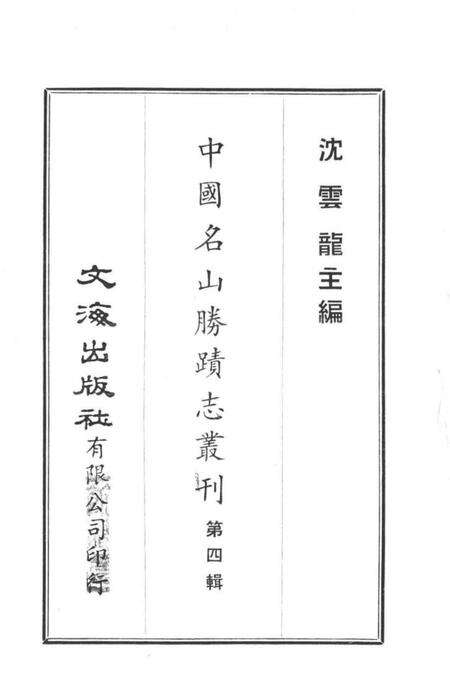 沈雲龍主編
中國名山勝蹟志叢刊 第四輯
文海出版社有限公司印行